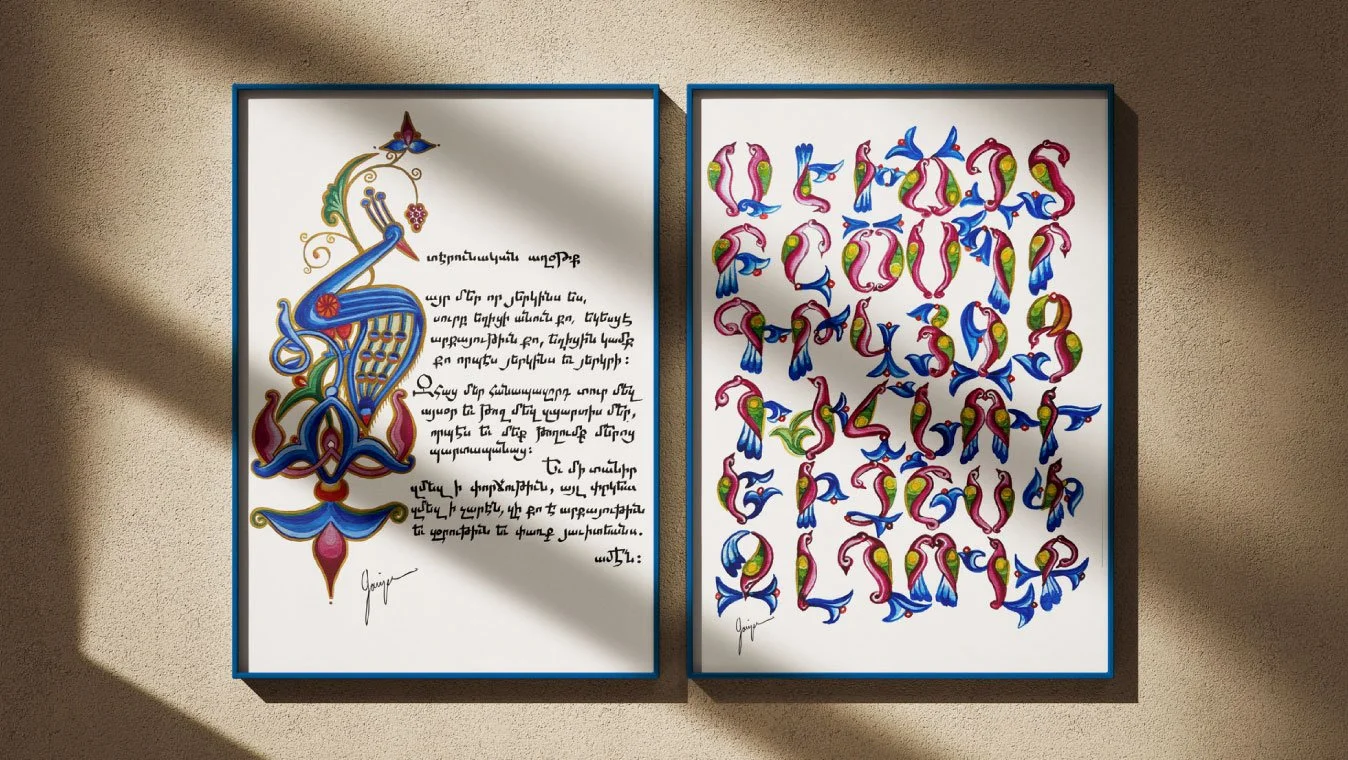 տէրունական աղօթք
այր մեր որ յերկինս ես,
սուրբ եղիցի անուն քո, եկեսցէ
արքայութիւն քո, եղիցին կամք
քո որպէս յերկինս եւ յերկրի :
ԶՀաց մեր հանապազորդ տուր մեզ
այսօր եւ թող մեզ զպարտիս մեր,
որպէս եւ մեք թողումք մերոց
պարտապանաց:
Եւ մի տանիր
զմեզ ի փորձութիւն, այլ փրկեա
զմեզ ի չարէն, զի քո է արքայութիւն
եւ զօրութիւն եւ փառք յաւիտեանս.
ամէն:
Ա Է Խ Ճ Չ Տ
Բ Ը Ծ Մ Պ Ր
Գ Թ Կ Յ Ջ Ց
Դ Ժ Հ Ն Ռ Ւ
Ե Ի Ձ Շ Ս Փ
Զ Լ Ղ Ո Վ Ք